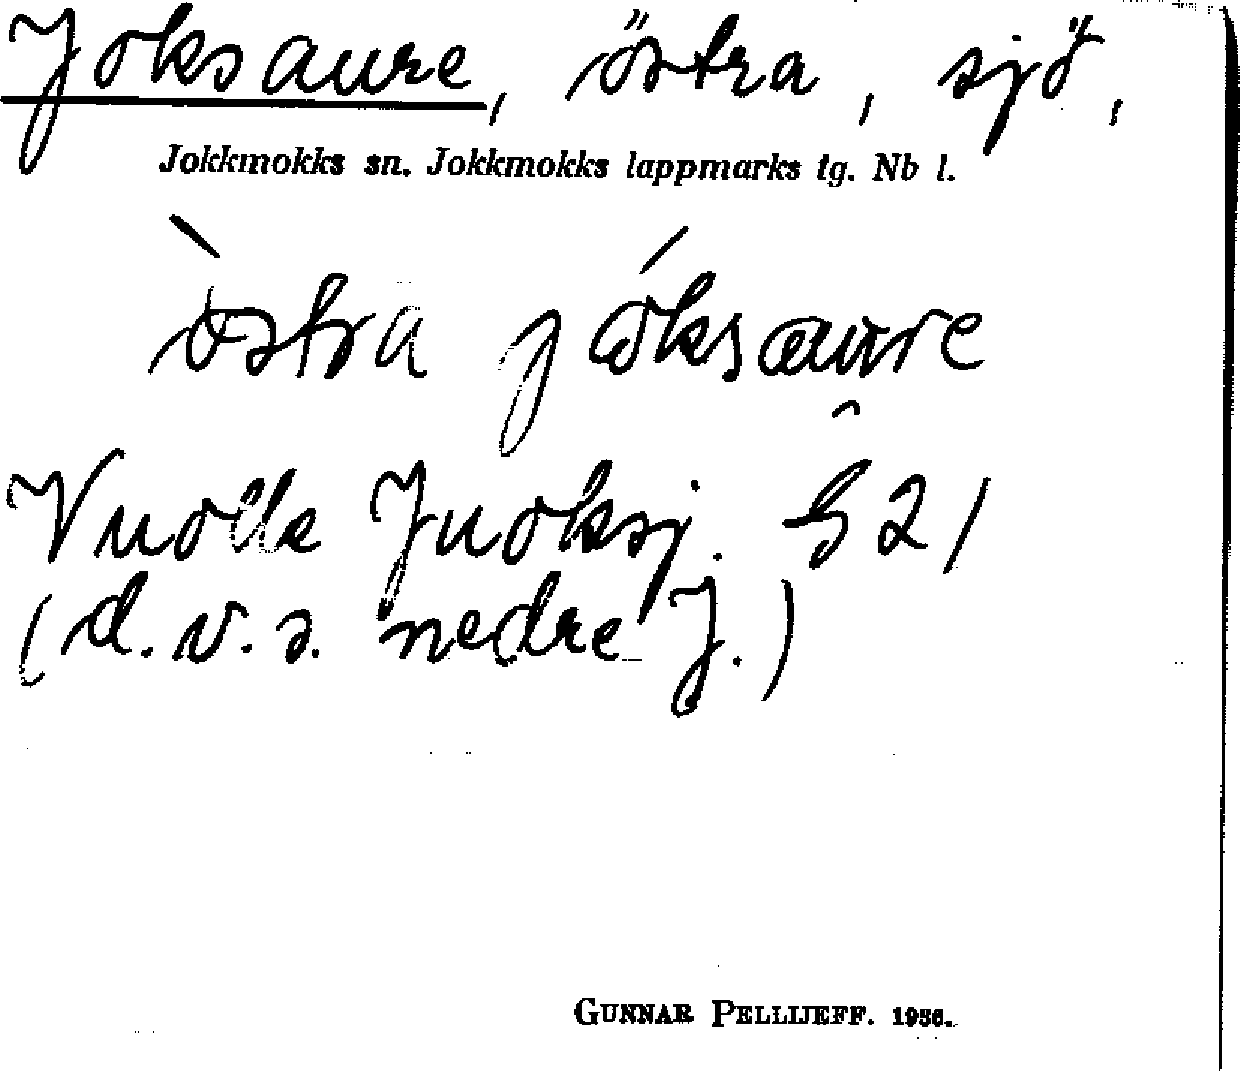 Joksaure, östra, sjö,
Jokkmokks sn. Jokkmokks lappmarks tg. Nb l.
östra jåksaure
Vuolle Juoksj. G 21
(d.v.s. nedre J.)
GUNNAR PELLIJEFF. 1956.